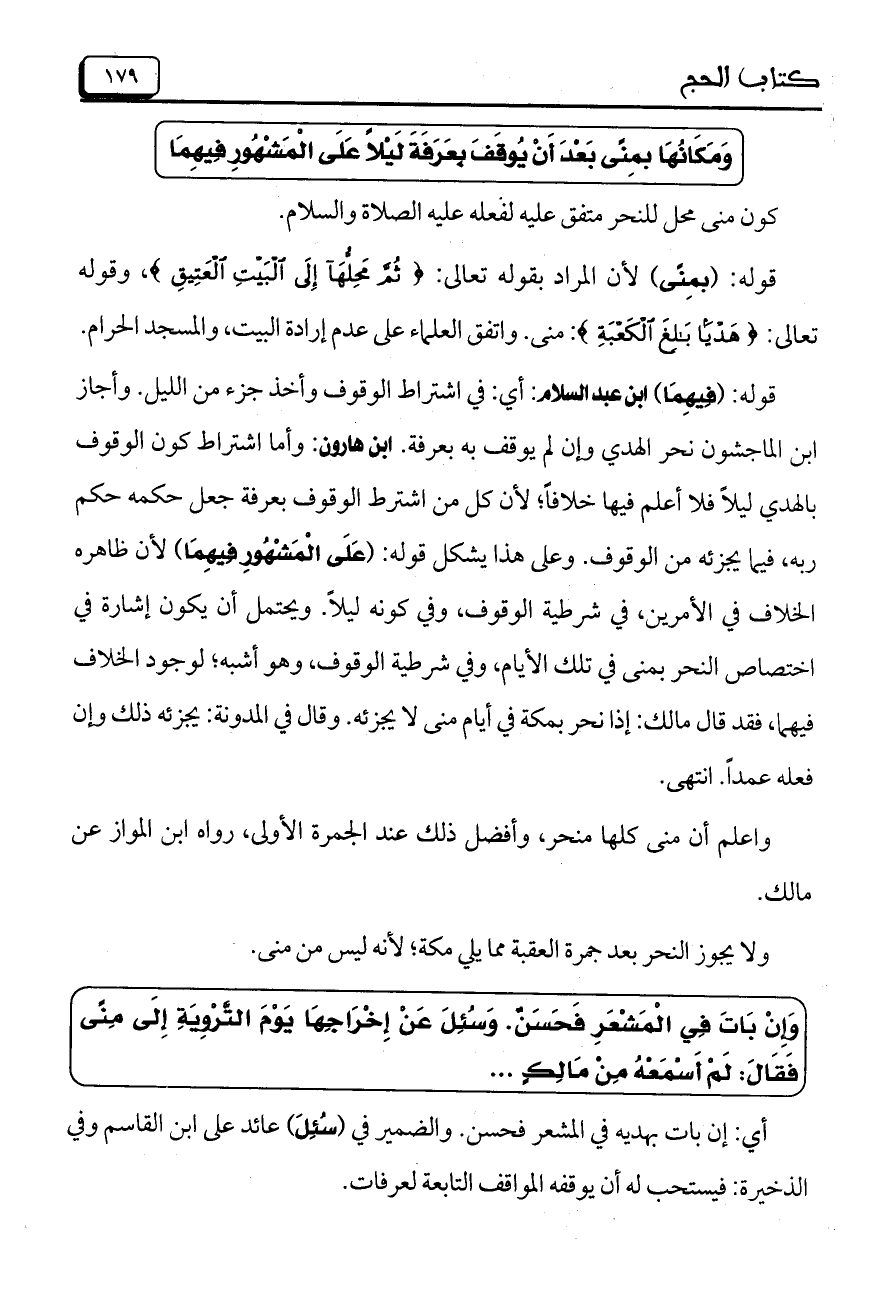 كتاب الحج
١٧٩
وَمَكَانُهَا بِمِنًى بَعْدَ أَنْ يُوقَفَ بِعَرَفَةَ لَيْلاً عَلَى الْمَشْهُورِ فِيهِمَا
كون منى محل للنحر متفق عليه لفعله عليه الصلاة والسلام.
قوله: (بِمِنًى) لأن المراد بقوله تعالى: ﴿ ثُمَّ مَحِلُّهَآ إِلَى ٱلْبَيْتِ ٱلْعَتِيقِ ﴾، وقوله
تعالى: ﴿ هَدْيًۢا بَٰلِغَ ٱلْكَعْبَةِ ﴾: منى. واتفق العلماء على عدم إرادة البيت، والمسجد الحرام.
قوله: (فِيهِمَا) ابن عبد السلام: أي: في اشتراط الوقوف وأخذ جزء من الليل. وأجاز
ابن الماجشون نحر الهدي وإن لم يوقف به بعرفة. ابن هارون: وأما اشتراط كون الوقوف
بالهدي ليلاً فلا أعلم فيها خلافاً؛ لأن كل من اشترط الوقوف بعرفة جعل حكمه حكم
ربه، فيما يجزئه من الوقوف. وعلى هذا يشكل قوله: (عَلَى الْمَشْهُورِ فِيهِمَا) لأن ظاهره
الخلاف في الأمرين، في شرطية الوقوف، وفي كونه ليلاً. ويحتمل أن يكون إشارة في
اختصاص النحر بمنى في تلك الأيام، وفي شرطية الوقوف، وهو أشبه؛ لوجود الخلاف
فيهما، فقد قال مالك: إذا نحر بمكة في أيام منى لا يجزئه. وقال في المدونة: يجزئه ذلك وإن
فعله عمداً. انتهى.
واعلم أن منى كلها منحر، وأفضل ذلك عند الجمرة الأولى، رواه ابن المواز عن
مالك.
ولا يجوز النحر بعد جمرة العقبة مما يلي مكة؛ لأنه ليس من منى.
وَإِنْ بَاتَ فِي الْمَشْعَرِ فَحَسَنٌ. وَسُئِلَ عَنْ إِخْرَاجِهَا يَوْمَ التَّرْوِيَةِ إِلَى مِنًى
فَقَالَ: لَمْ أَسْمَعْهُ مِنْ مَالِكٍ ...
أي: إن بات بهديه في المشعر فحسن. والضمير في (سُئِلَ) عائد على ابن القاسم وفي
الذخيرة: فيستحب له أن يوقفه المواقف التابعة لعرفات.